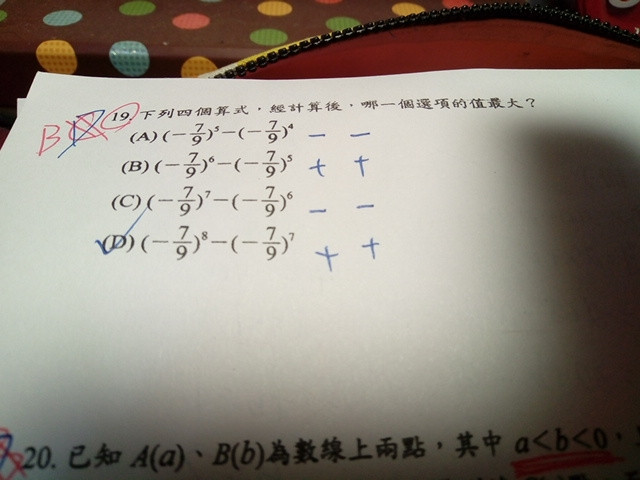 B 19. 下列四個算式，經計算後，哪一個選項的值最大？
(A) (−7/9)^5−(−7/9)^4 − −
(B) (−7/9)^6−(−7/9)^5 + +
(C) (−7/9)^7−(−7/9)^6 − −
(D) (−7/9)^8−(−7/9)^7 + +
20. 已知 A(a)、B(b)為數線上兩點，其中 a<b<0，